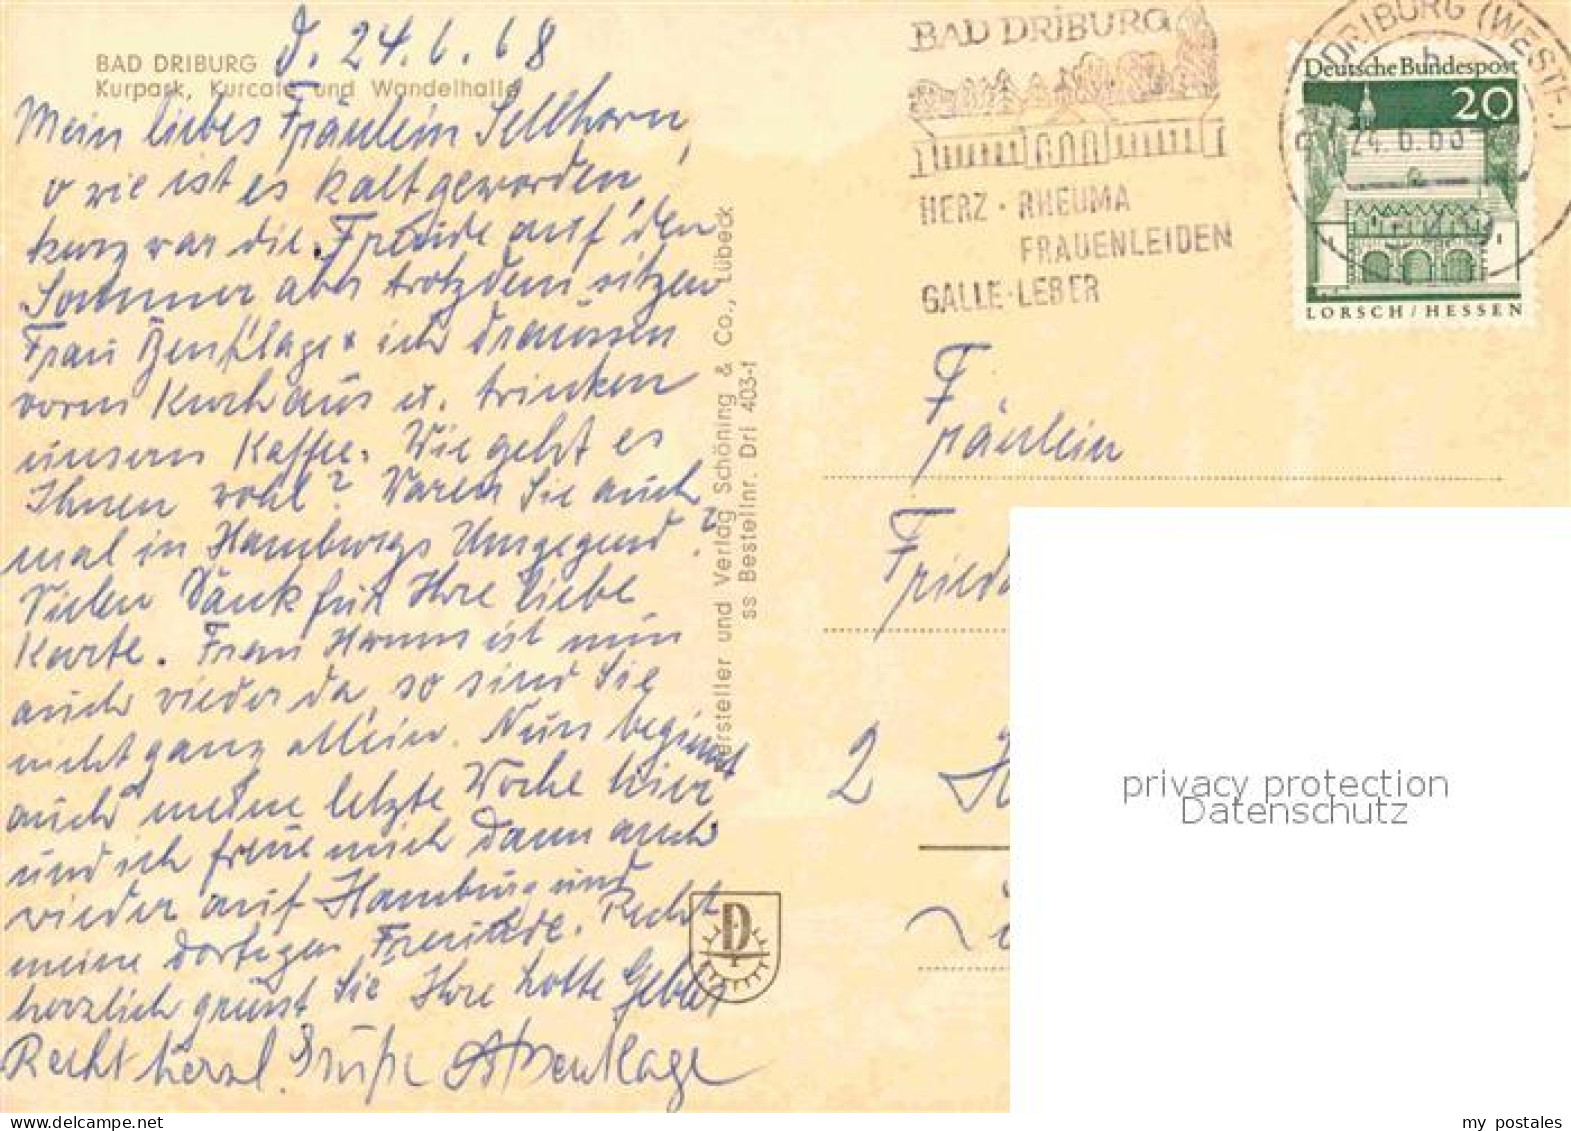 BAD DRIBURG
Kurpark, Kurcafe und Wandelhalle
D. 24.6.68
Mein liebes Fräulein Sellhorn,
o wie ist es kalt geworden,
kurz war die Freude auf den
Sommer aber trotzdem sitzen
Frau Bentlage + ich draussen
vorm Kurhaus u. trinken
unsern Kaffee. Wie geht es
Ihnen wohl? Waren Sie auch
mal in Hamburgs Umgegend?
Vielen Dank für Ihre liebe
Karte. Frau Hamm ist nun
auch wieder da so sind Sie
nicht ganz allein. Nun beginnt
auch meine letzte Woche hier
und ich freue mich dann auch
wieder auf Hamburg und
meine dortigen Freunde. Recht
herzlich grüsst Sie Ihre Lotte
Recht herzl. Grüße Bentlage
Hersteller und Verlag Schöning & Co., Lübeck
ss Bestellnr. Dri 403-1
D
BAD DRIBURG
HERZ · RHEUMA
FRAUENLEIDEN
GALLE · LEBER
DRIBURG (WESTF.)
24.6.68
Deutsche Bundespost
20
LORSCH / HESSEN
Fräulein
2
privacy protection
Datenschutz
my postales